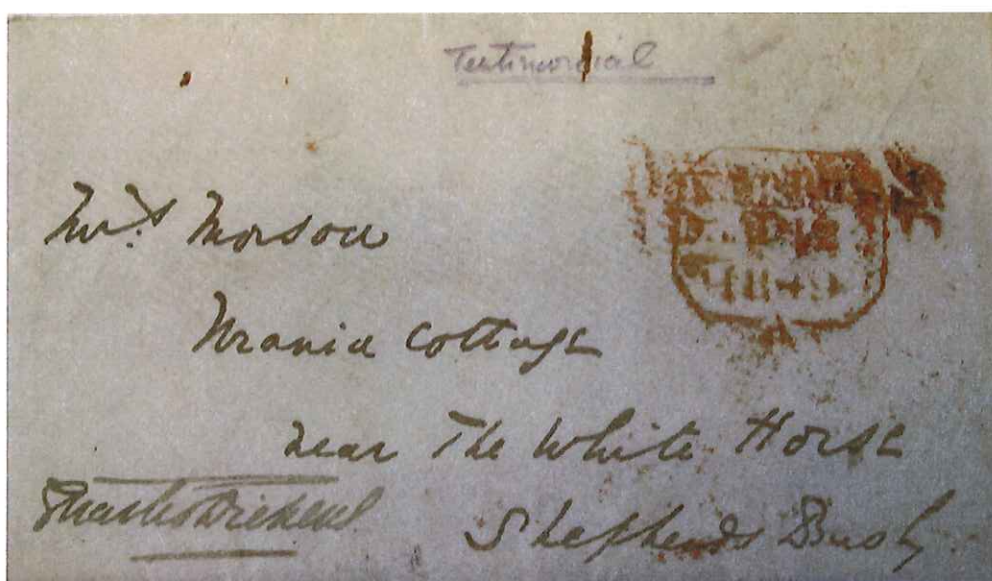 Testimonial
Mrs. Morson
Urania Cottage
near The White Horse
Shepherds Bush
Charles Dickens
1849